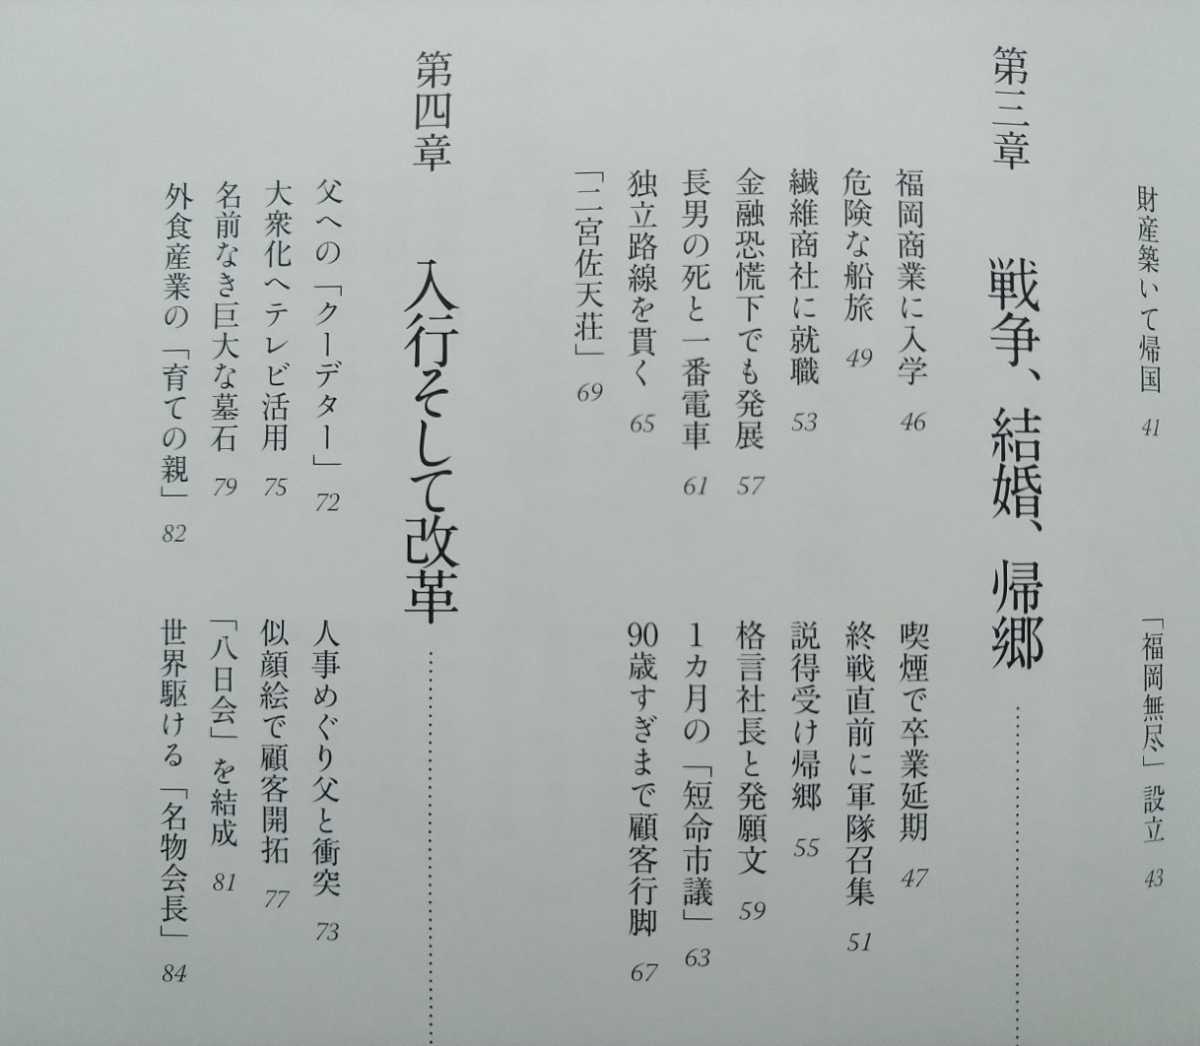 財産築いて帰国 41
「福岡無尽」設立 43
第三章 戦争、結婚、帰郷
福岡商業に入学 46
喫煙で卒業延期 47
危険な船旅 49
終戦直前に軍隊召集 51
繊維商社に就職 53
説得受け帰郷 55
金融恐慌下でも発展 57
格言社長と発願文 59
長男の死と一番電車 61
1カ月の「短命市議」 63
独立路線を貫く 65
90歳すぎまで顧客行脚 67
「二宮佐天荘」 69
第四章 入行そして改革
父への「クーデター」 72
人事めぐり父と衝突 73
大衆化へテレビ活用 75
似顔絵で顧客開拓 77
名前なき巨大な墓石 79
「八日会」を結成 81
外食産業の「育ての親」 82
世界駆ける「名物会長」 84